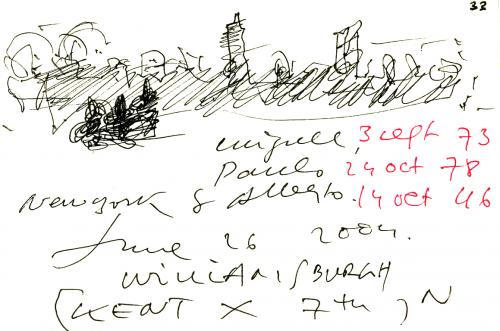 32
miguel, 3 sept 73
Paulo 24 oct 78
Newyork & Alberto. 14 oct 46
June 26 2004.
WILLIAMSBURGH
(KENT X 7th, N